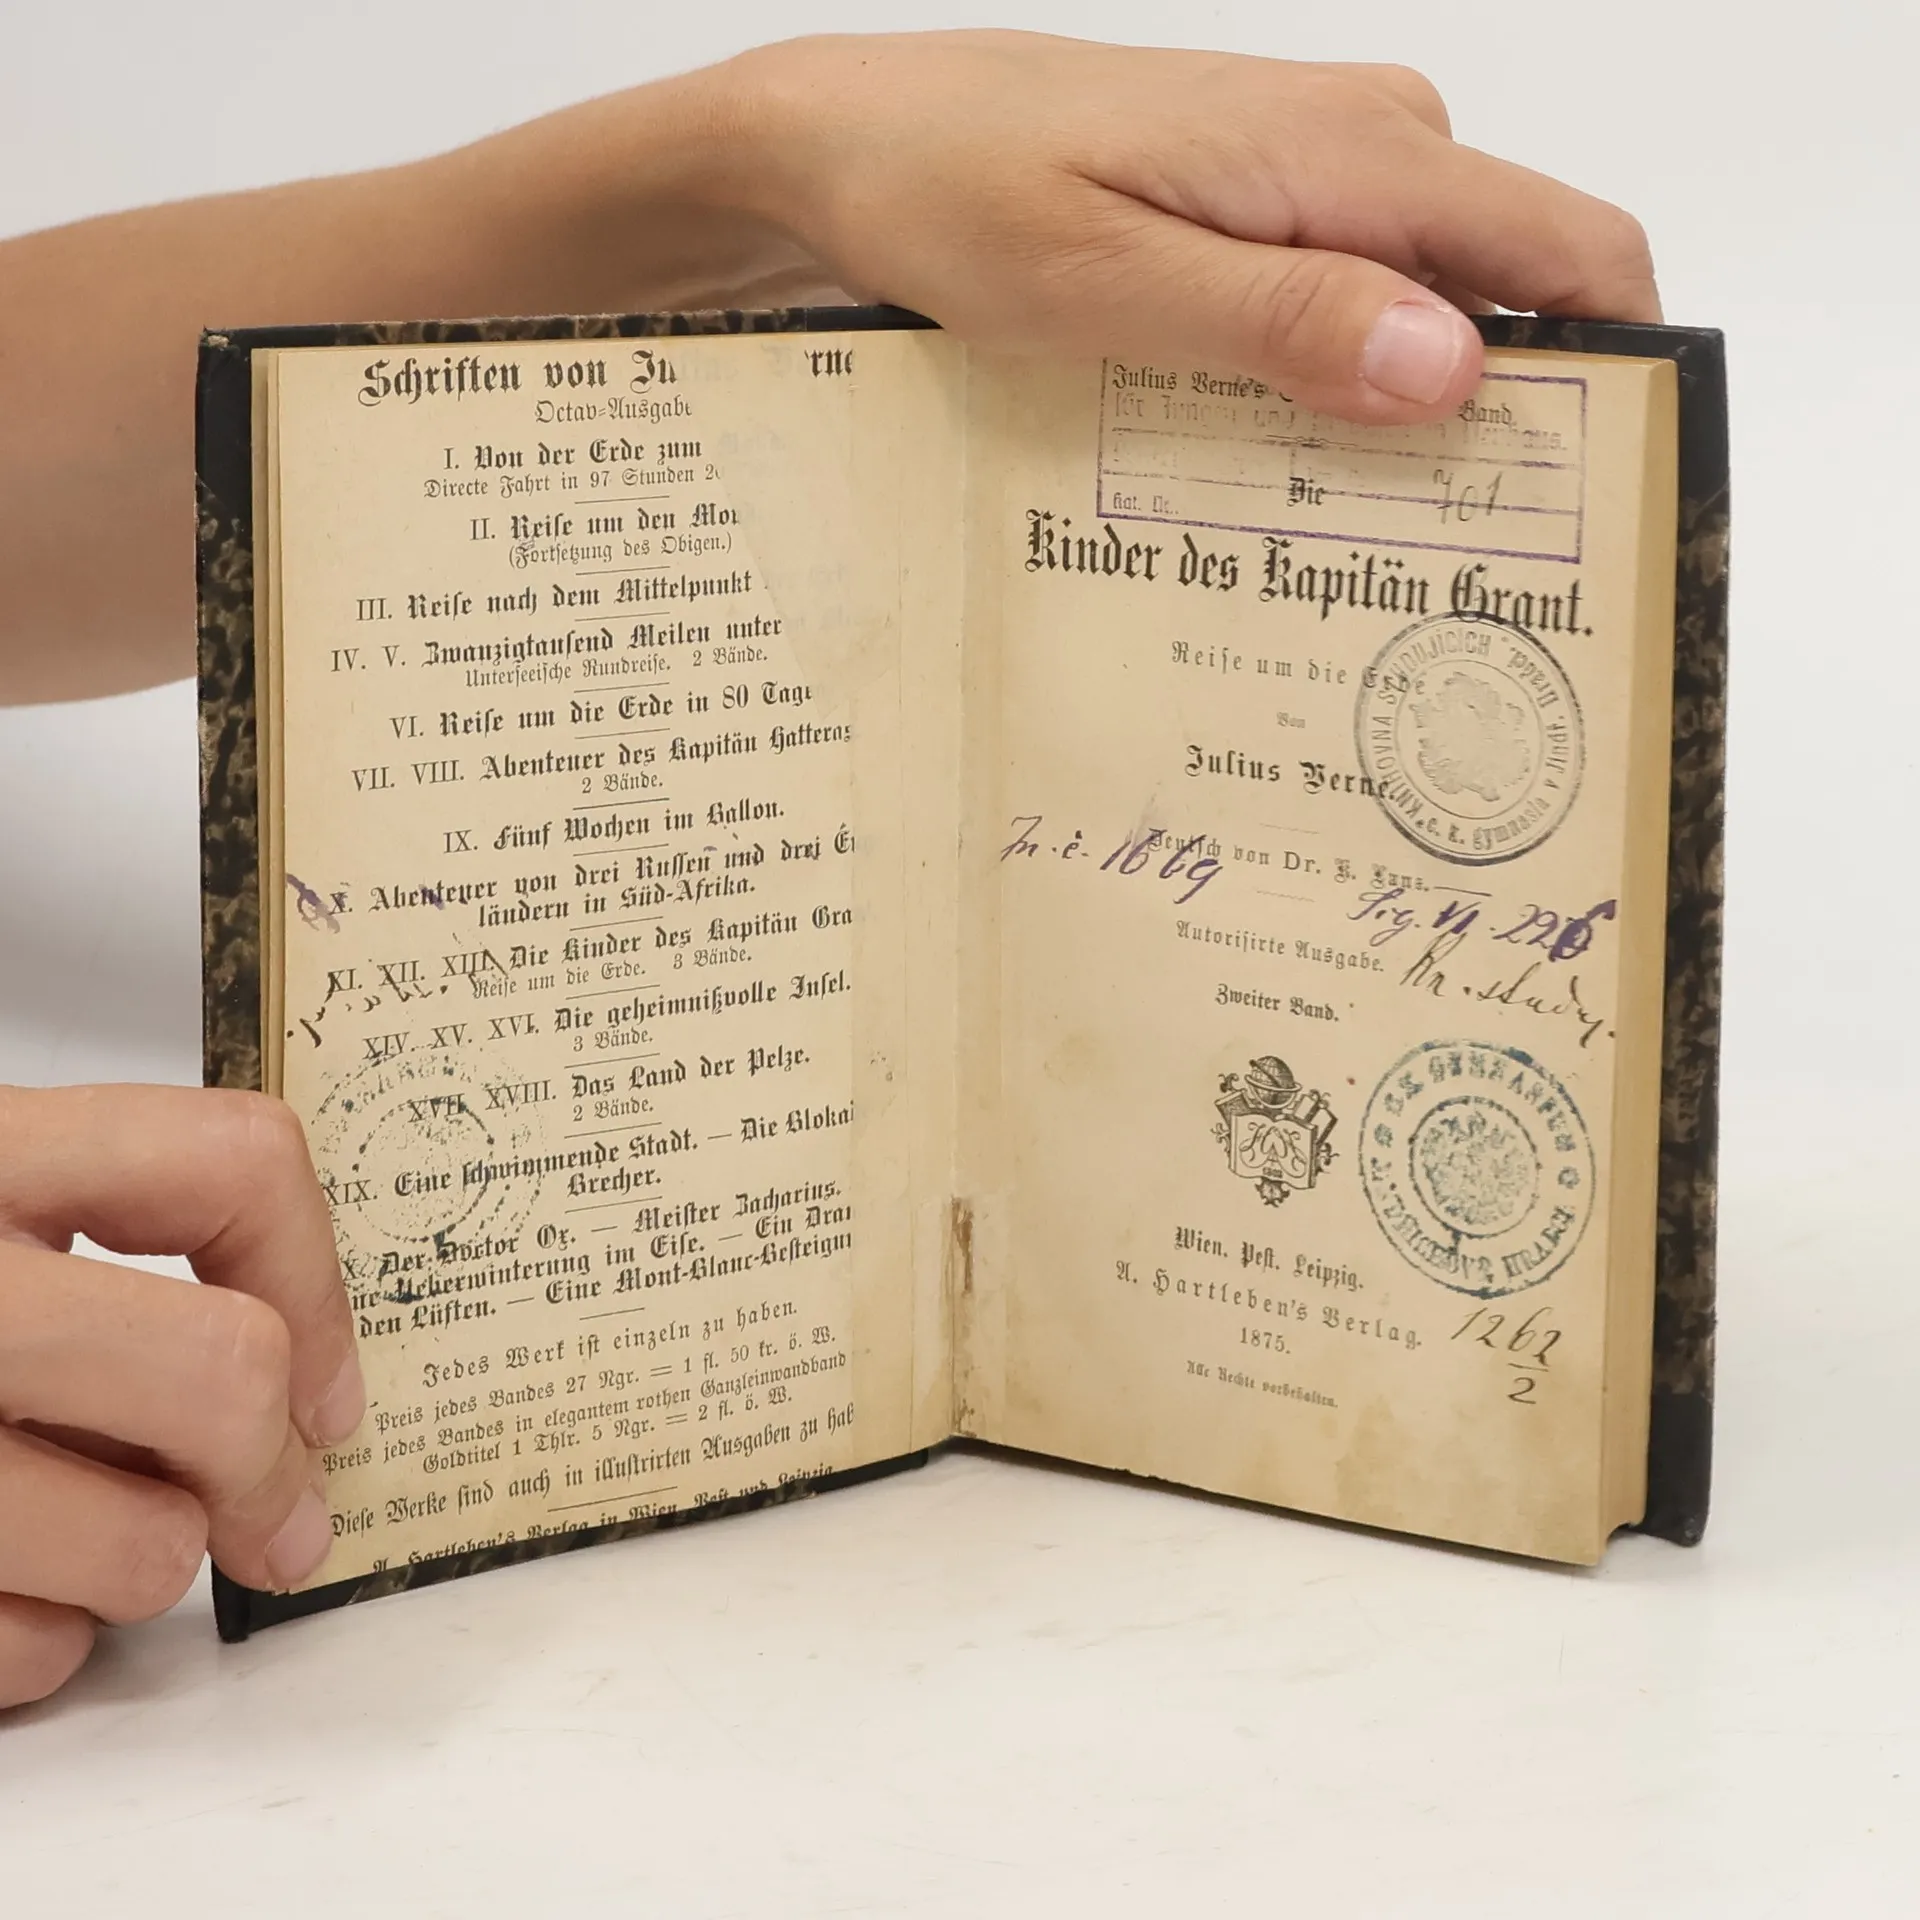 Schriften von
Octav-Ausgabe
I. Von der Erde zum
Directe Fahrt in 97 Stunden 20
II. Reise um den Mon
(Fortsetzung des Obigen.)
III. Reise nach dem Mittelpunkt
IV. V. Zwanzigtausend Meilen unter
Unterseeische Rundreise. 2 Bände.
VI. Reise um die Erde in 80 Tage
VII. VIII. Abenteuer des Kapitän Hatteras
2 Bände.
IX. Fünf Wochen im Ballon.
X. Abenteuer von drei Russen und drei En
ländern in Süd-Afrika.
XI. XII. XIII. Die Kinder des Kapitän Gra
Reise um die Erde. 3 Bände.
XIV. XV. XVI. Die geheimnißvolle Insel.
3 Bände.
XVII. XVIII. Das Land der Pelze.
2 Bände.
XIX. Eine schwimmende Stadt. — Die Blokad
Brecher.
X. Der Doctor Ox. — Meister Zacharius.
ne Ueberwinterung im Eise. — Ein Dram
den Lüften. — Eine Mont-Blanc-Besteigun
Jedes Werk ist einzeln zu haben.
Preis jedes Bandes 27 Ngr. = 1 fl. 50 kr. ö. W.
Preis jedes Bandes in elegantem rothen Ganzleinwandband
Goldtitel 1 Thlr. 5 Ngr. = 2 fl. ö. W.
Diese Werke sind auch in illustrirten Ausgaben zu hab
A. Hartleben's Verlag in Wien, Pest und Leipzig
Julius Verne's Band.
Kat. Nr. 701.
Die
Kinder des Kapitän Grant.
Reise um die Erde
Von
Julius Verne.
KNIHOVNA STUDUJÍCÍCH c. k. gymnasia v Jindř. Hradci.
In. č. 1669
Deutsch von Dr. K. Lanz.
Sig. VI. 226
Autorisirte Ausgabe.
Kn. study.
Zweiter Band.
Wien. Pest. Leipzig.
A. Hartleben's Verlag.
1875.
1262
2
Alle Rechte vorbehalten.